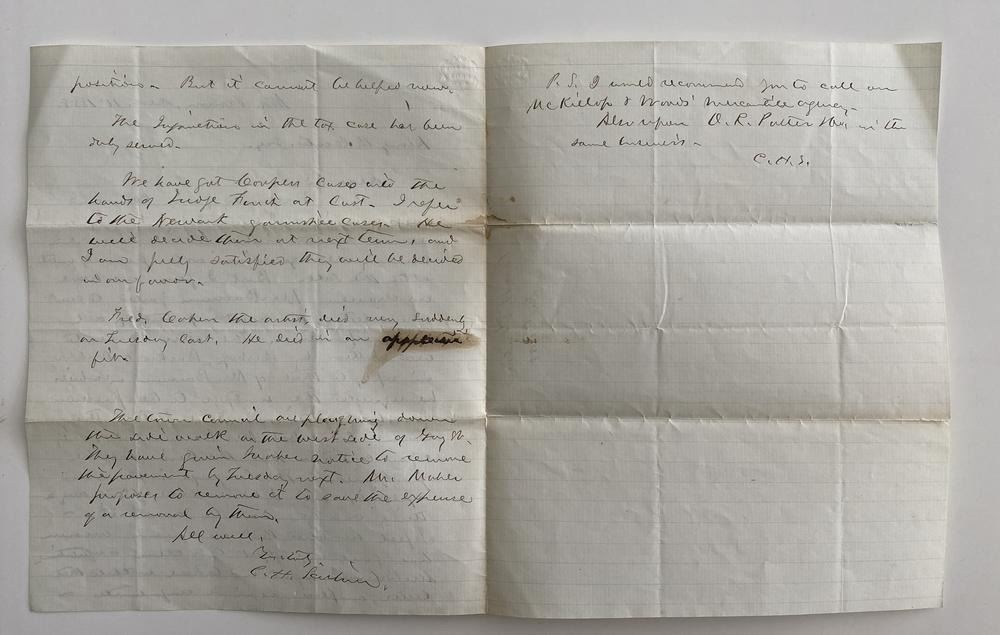 position. But it cannot be helped now.
The Injunction in the tax case has been
duly served.
We have got Coopers cases into the
hands of Judge French at last. I refer
to the Newark garnishee cases. He
will decide them at next term, and
I am fully satisfied they will be decided
in our favor.
Fred. the artist, died very suddenly
on Tuesday last. He died in an
fit.
The town council are ploughing down
the side walk on the west side of Gay St.
They have given Maher notice to remove
the pavement by Tuesday next. Mr. Maher
proposes to remove it to save the expense
of a removal by them.
All well,
C. H.
P. S. I would recommend you to call on
McKillop & Woods' mercantile agency.
Also upon O. R. Potter in the
same business.
C. H. S.